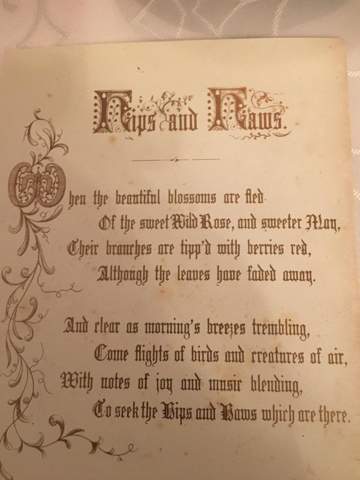 Hips and Haws.
When the beautiful blossoms are fled
Of the sweet Wild Rose, and sweeter May,
Their branches are tipp'd with berries red,
Although the leaves have faded away.
And clear as morning's breezes trembling,
Come flights of birds and creatures of air,
With notes of joy and music blending,
To seek the Hips and Haws which are there.